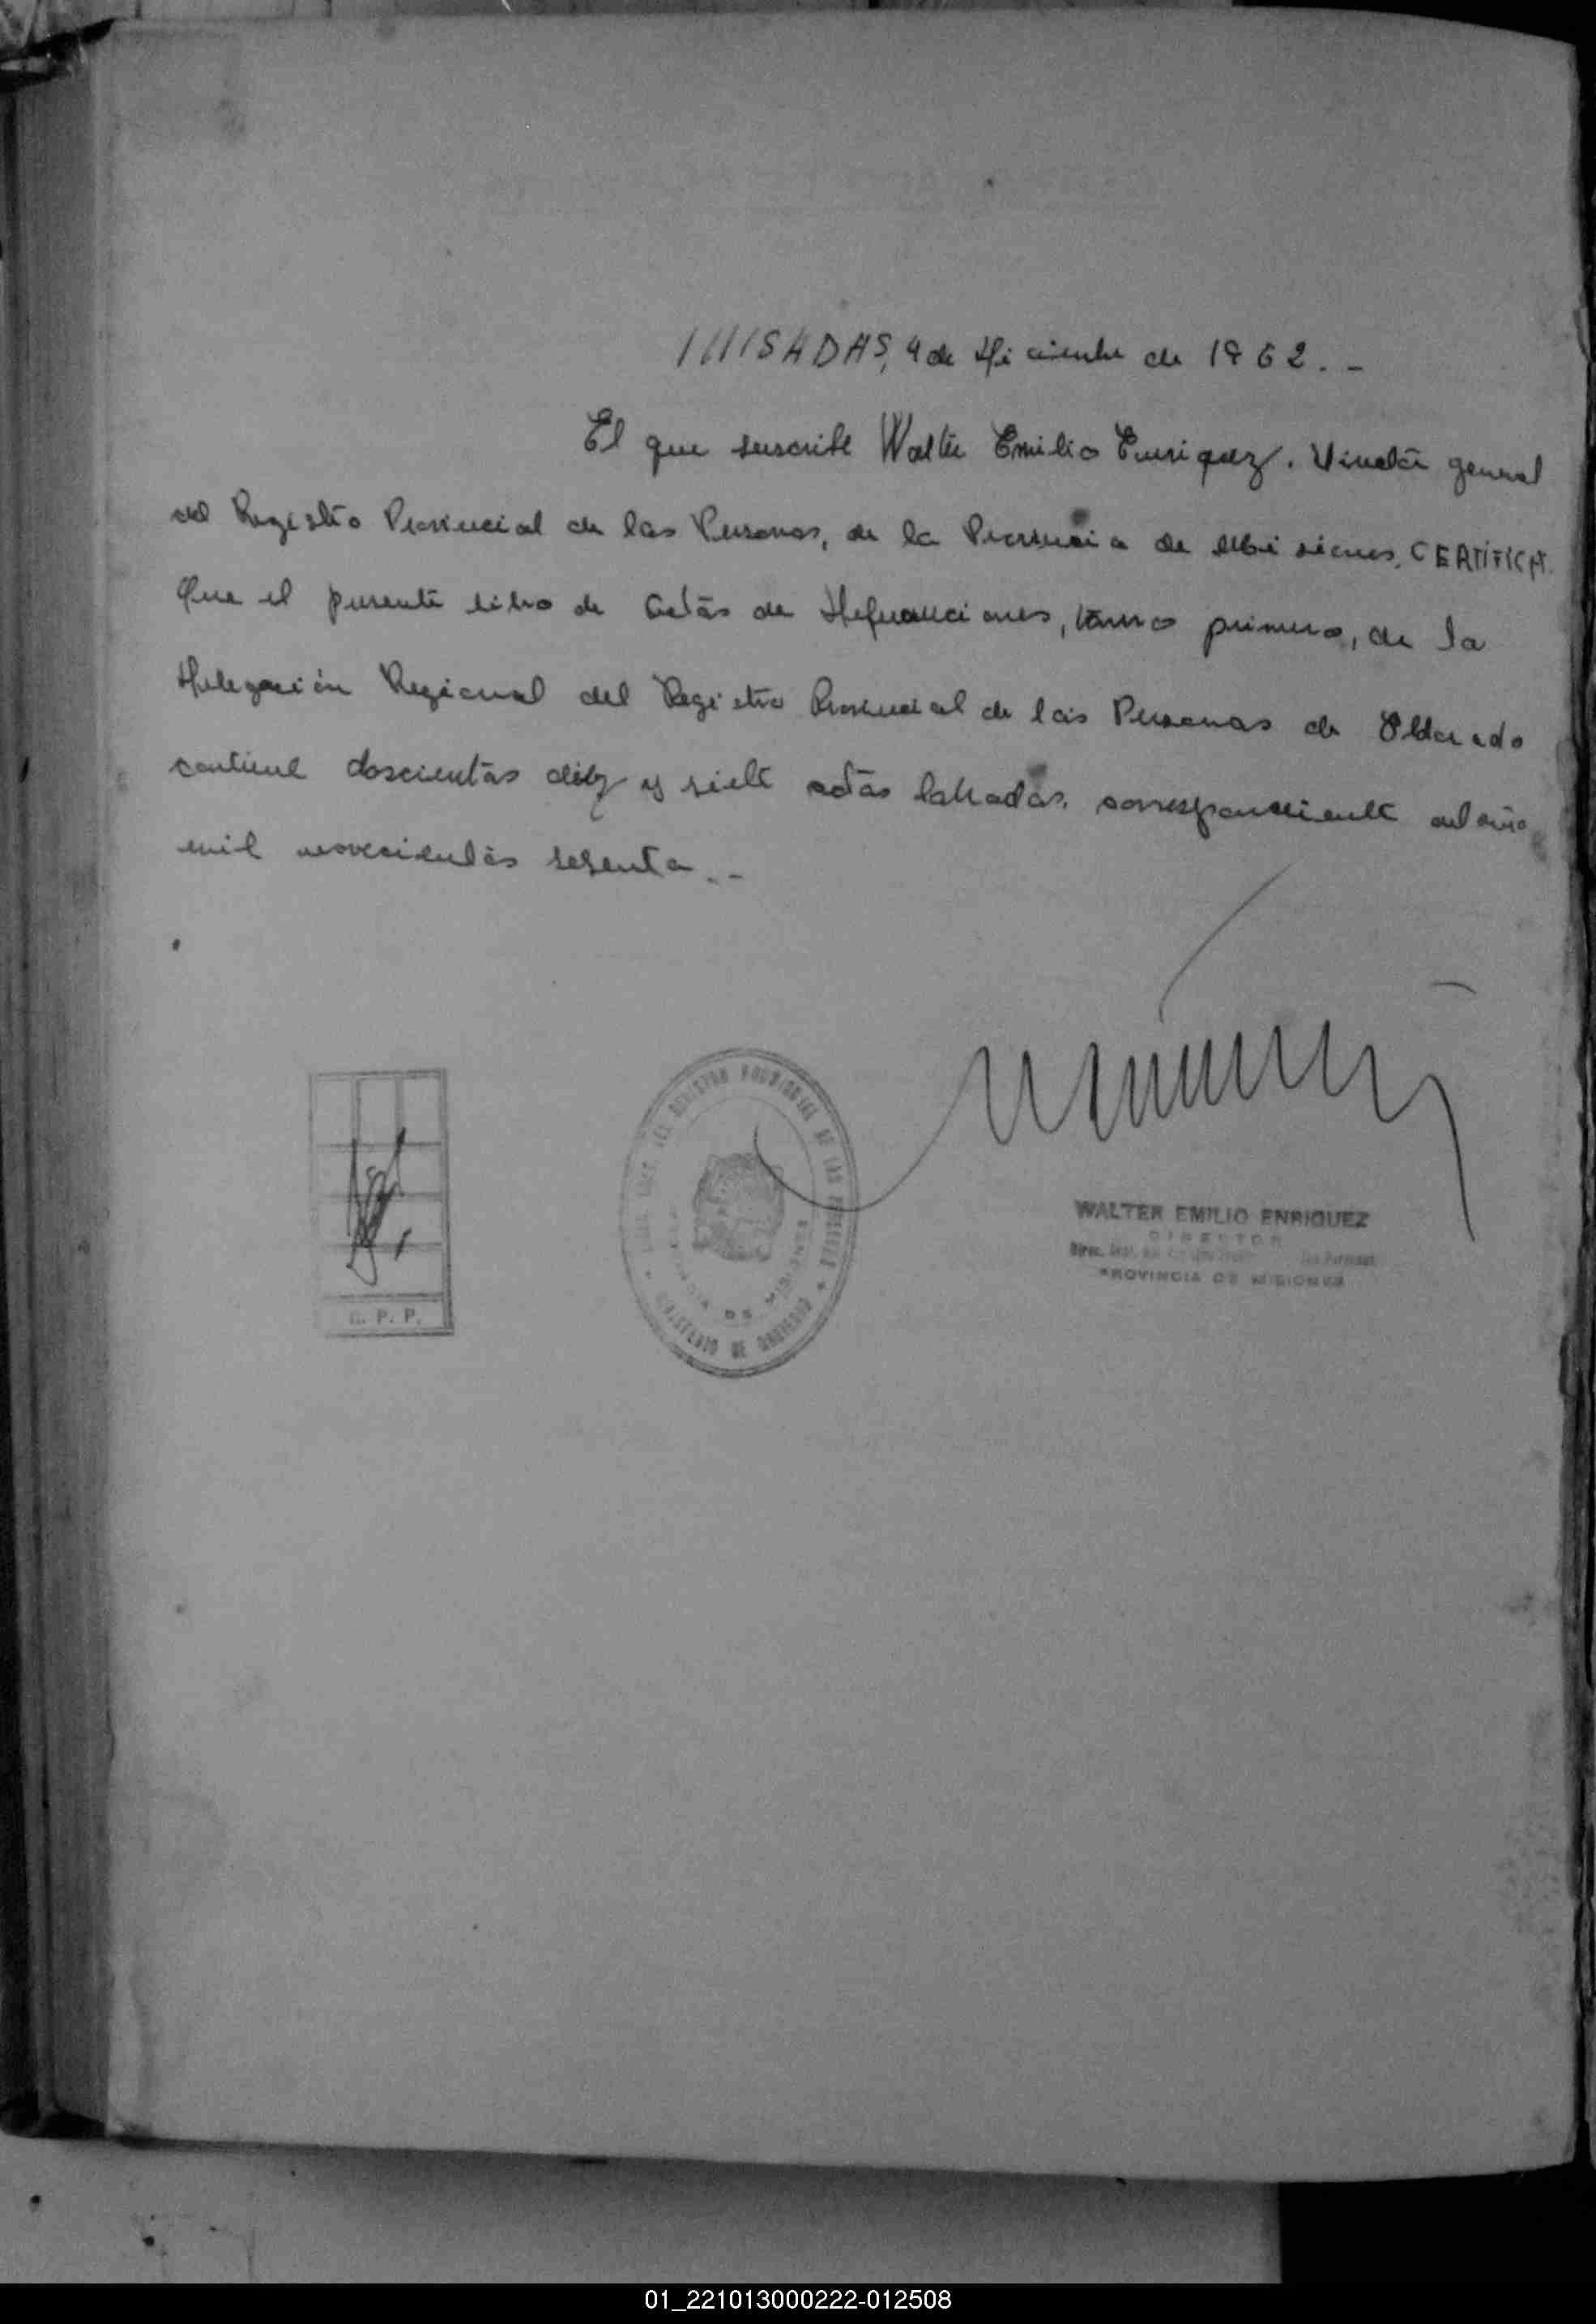 ///ISADAS, 4 de Diciembre de 1962.-
El que suscribe Walter Emilio Enriquez. Director general
del Registro Provincial de las Personas, de la Provincia de Misiones, CERTIFICA
Que el presente libro de Actas de Defunciones, tomo primero, de la
Delegación Regional del Registro Provincial de las Personas de Eldorado
contiene doscientas diez y siete actas labradas, correspondiente al año
mil novecientos sesenta.-
DEL REGISTRO PROVINCIAL DE LAS PERSONAS
PROVINCIA DE MISIONES
MINISTERIO DE GOBIERNO
WALTER EMILIO ENRIQUEZ
DIRECTOR
PROVINCIA DE MISIONES
G. P. P.
01_221013000222-012508